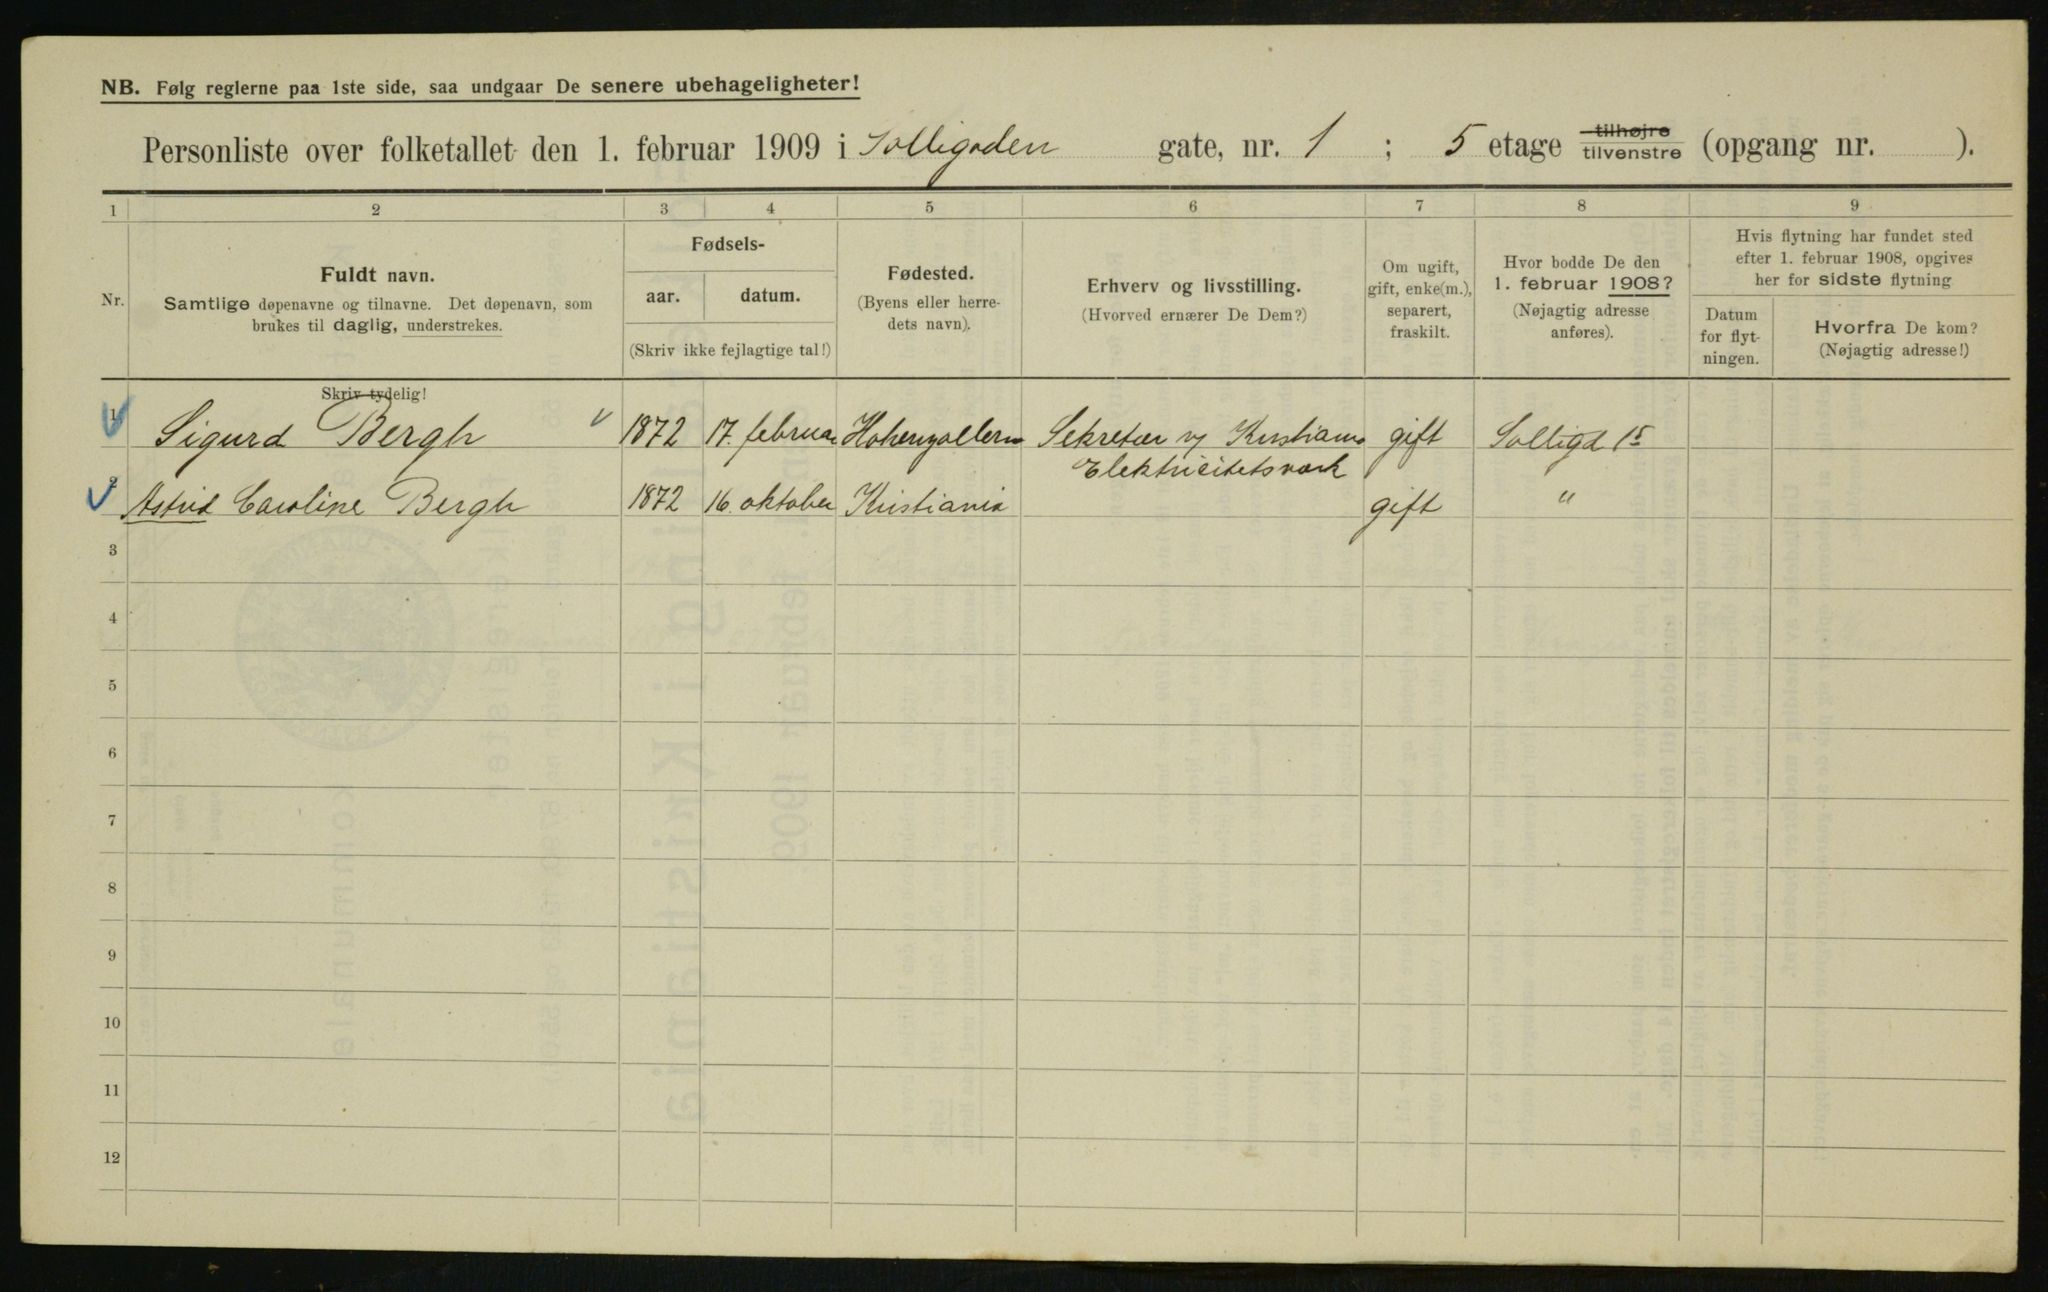 NB. Følg reglerne paa 1ste side, saa undgaar De senere ubehageligheter!
Personliste over folketallet den 1. februar 1909 i Solligaden gate, nr. 1 ; 5 etage tilhøjre tilvenstre (opgang nr. ).
1 2 3 4 5 6 7 8 9
Nr.
Fuldt navn.
Samtlige døpenavne og tilnavne. Det døpenavn, som
brukes til daglig, understrekes.
Fødsels-
aar. datum.
(Skriv ikke fejlagtige tal!)
Fødested.
(Byens eller herre-
dets navn).
Erhverv og livsstilling.
(Hvorved ernærer De Dem?)
Om ugift,
gift, enke(m.),
separert,
fraskilt.
Hvor bodde De den
1. februar 1908?
(Nøjagtig adresse
anføres).
Hvis flytning har fundet sted
efter 1. februar 1908, opgives
her for sidste flytning
Datum
for flyt-
ningen.
Hvorfra De kom?
(Nøjagtig adresse!)
Skriv tydelig!
1 Sigurd Bergh 1872 17. februar Hohenzollern Sekretær v/ Kristiania gift Solligd 15
Elektricitetsverk
2 Astrid Caroline Bergh 1872 16. oktober Kristiania gift "
3
4
5
6
7
8
9
10
11
12